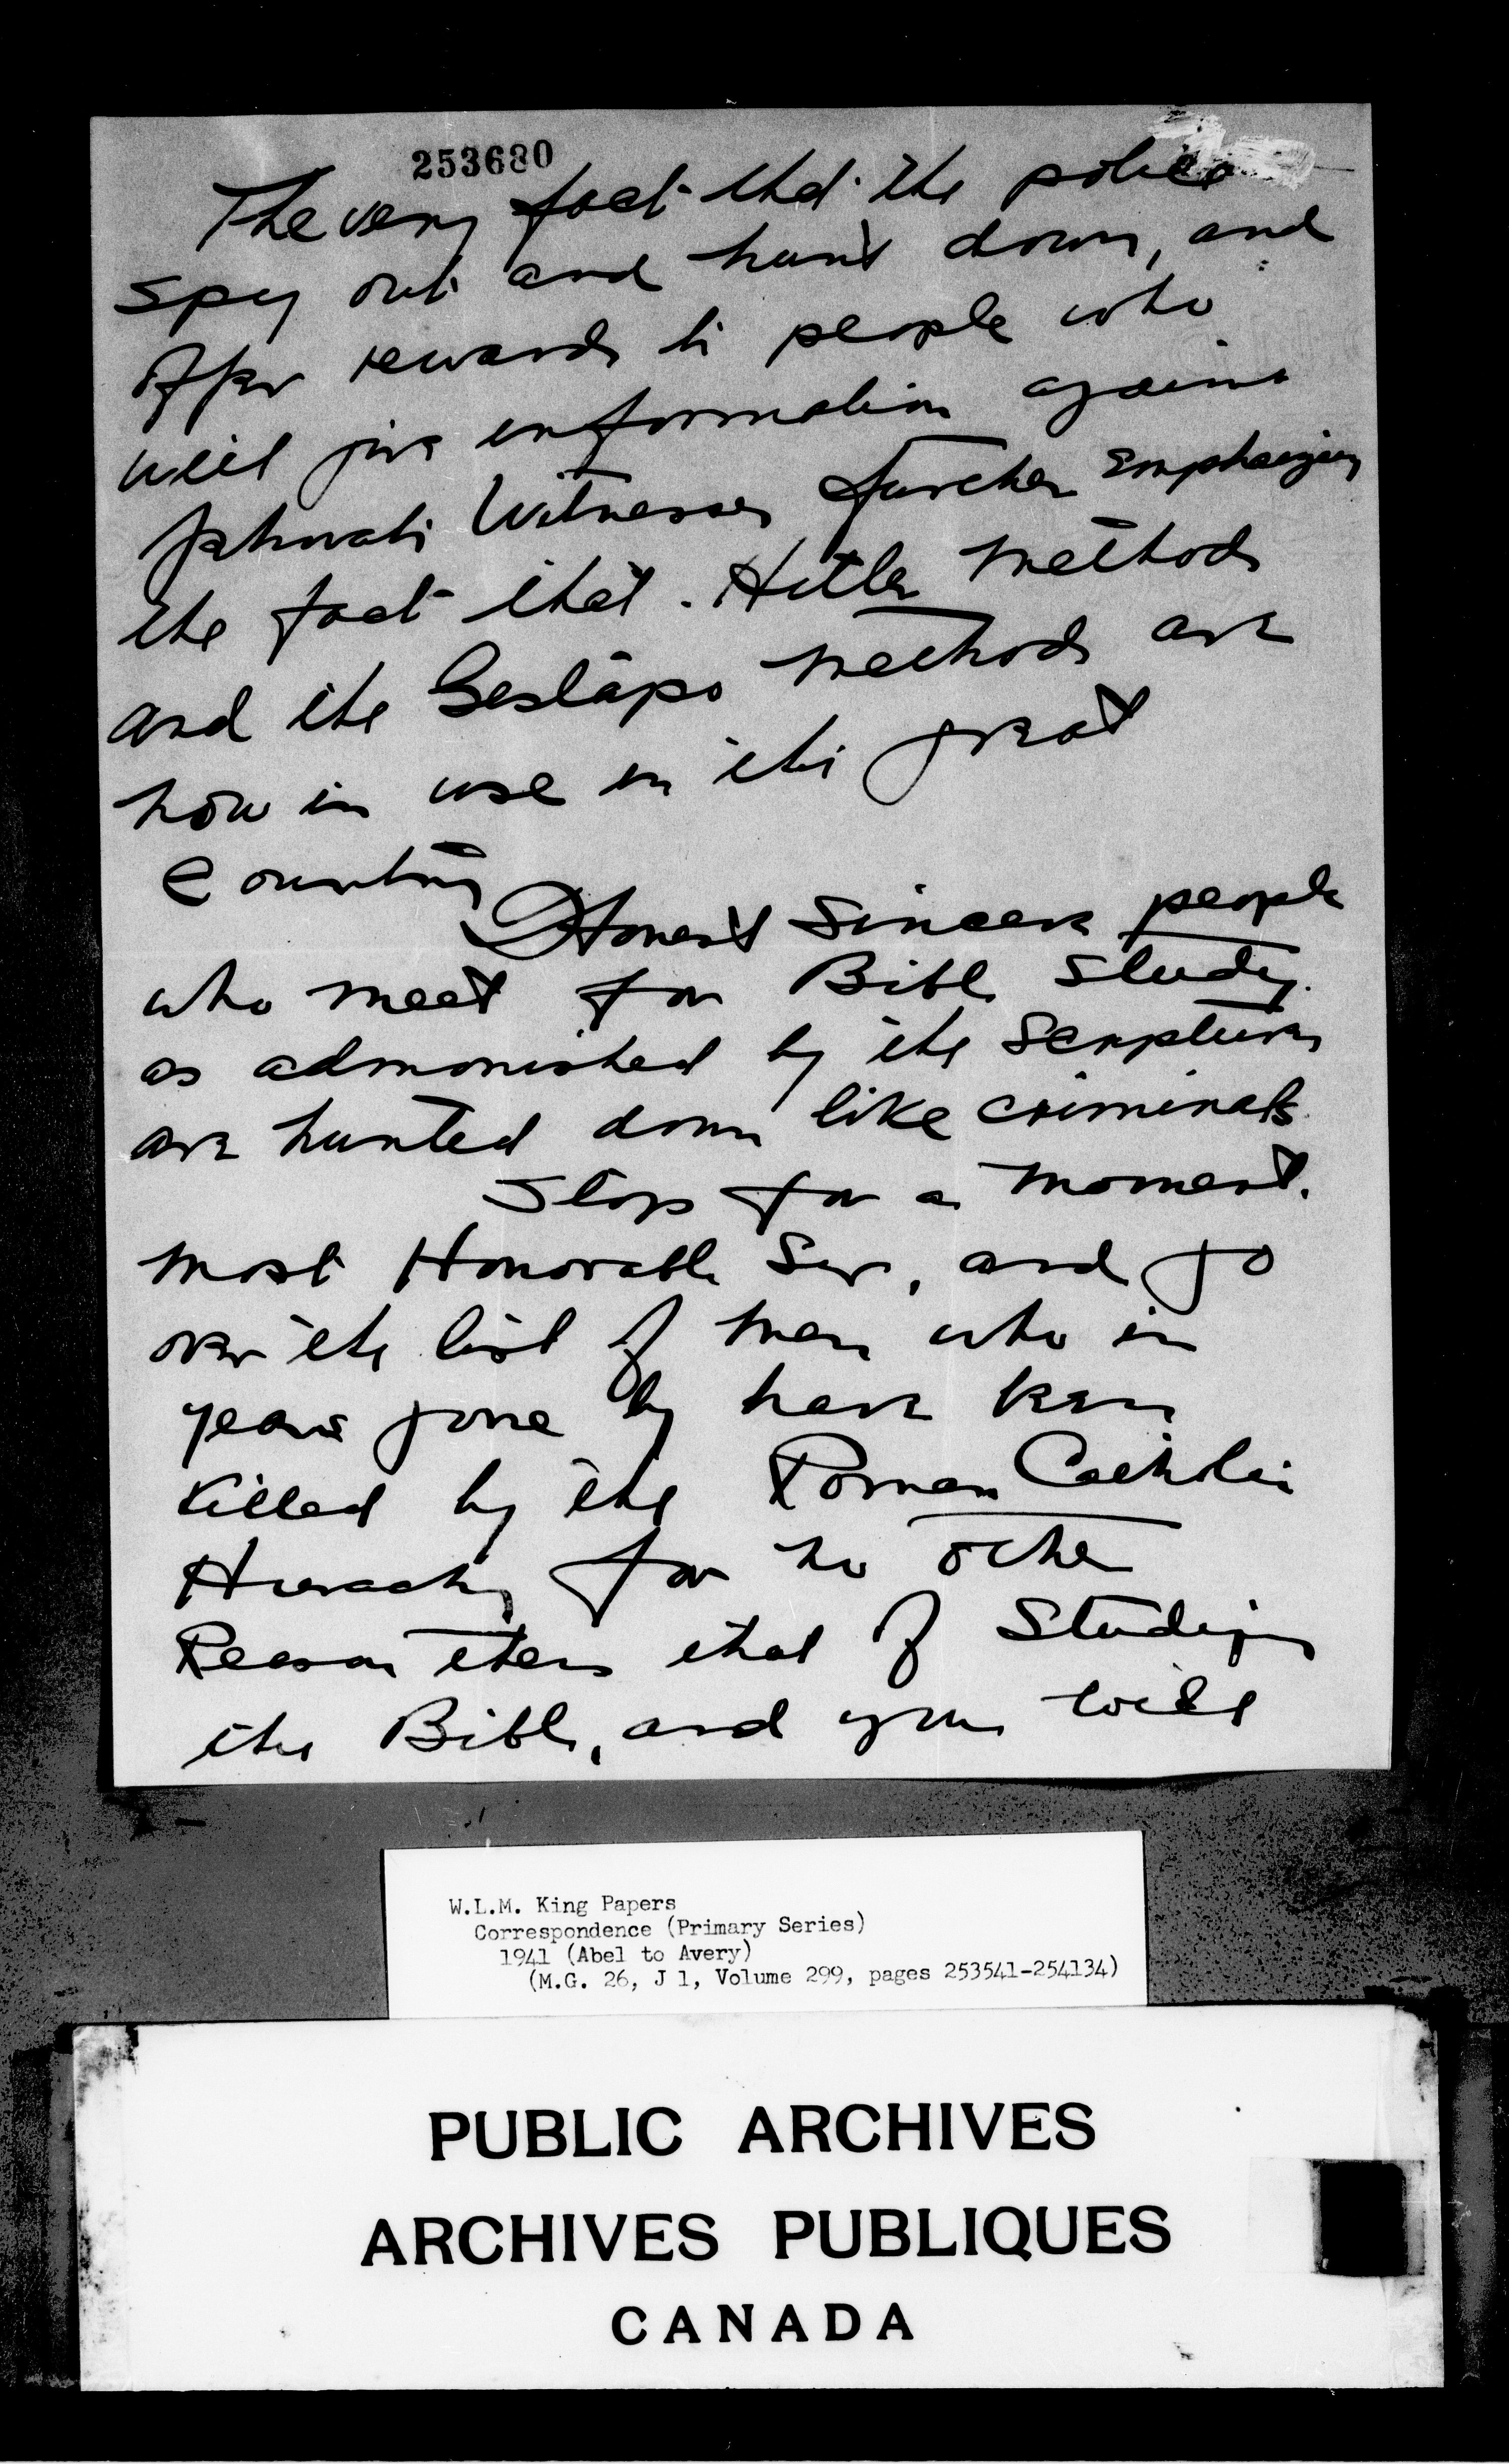 253680
The very fact that the police
spy out and hunt down, and
offer rewards to people who
will give information against
Jehovah's Witnesses further emphasizes
the fact that. Hitler methods
and the Gestapo methods are
now in use in this great
Country
Honest Sincere people
who meet for Bible Study.
as admonished by the Scriptures
are hunted down like criminals.
Stop for a moment.
most Honorable Sir, and go
over the list of men who in
years gone by have been
killed by the Roman Catholic
Hierarchy for no other
Reason then that of Studying
the Bible, and you will
W.L.M. King Papers
Correspondence (Primary Series)
1941 (Abel to Avery)
(M.G. 26, J 1, Volume 299, pages 253541-254134)
PUBLIC ARCHIVES
ARCHIVES PUBLIQUES
CANADA